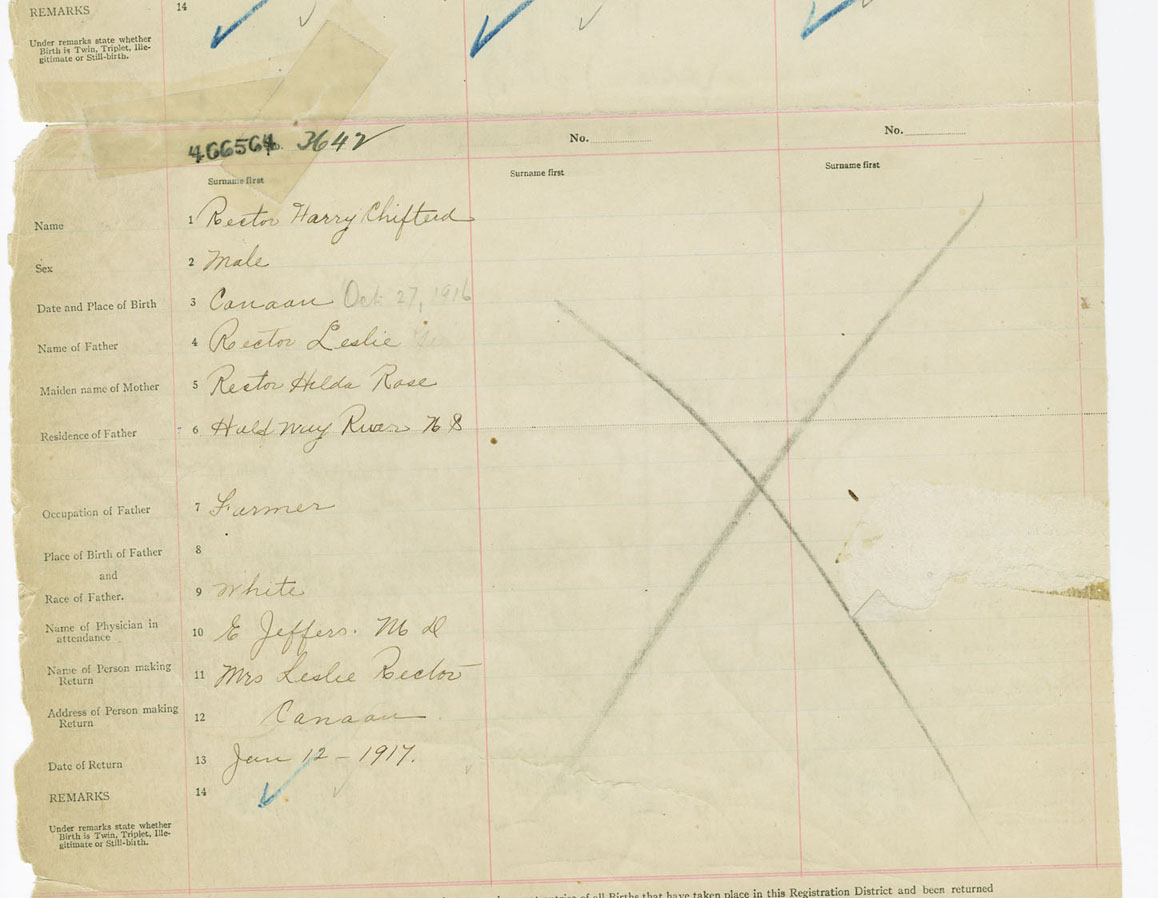 REMARKS 14
Under remarks state whether
Birth is Twin, Triplet, Ille-
gitimate or Still-birth.
3642 No. No.
Surname first Surname first Surname first
Name 1 Rector Harry
Sex 2 Male
Date and Place of Birth 3 Canaan Oct 27, 1916
Name of Father 4 Rector Leslie
Maiden name of Mother 5 Rector Hilda Rose
Residence of Father 6 River N S
Occupation of Father 7 Farmer
Place of Birth of Father 8
and
Race of Father. 9 White
Name of Physician in
attendance 10 E Jeffers. M D
Name of Person making
Return 11 Mrs Leslie Rector
Address of Person making
Return 12 Canaan
Date of Return 13 Jan 12 - 1917.
REMARKS 14
Under remarks state whether
Birth is Twin, Triplet, Ille-
gitimate or Still-birth.
entries of all Births that have taken place in this Registration District and been returned